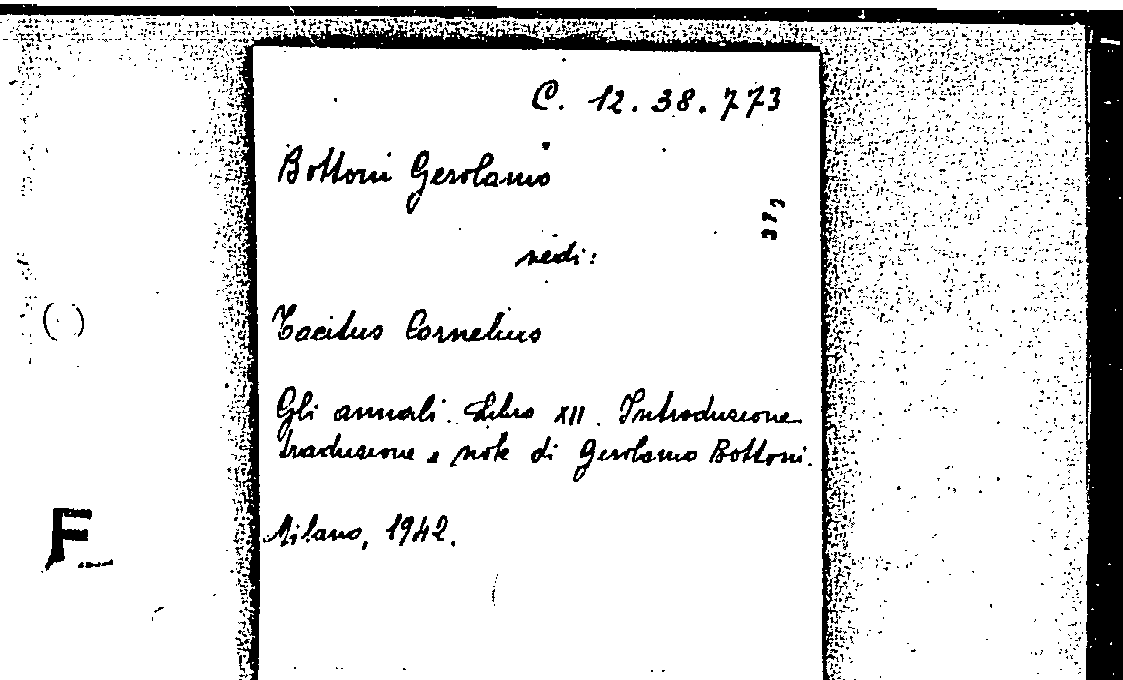 C. 12. 38. 773
Bottoni Gerolamo
372
vedi:
Tacitus Cornelius
Gli annali. Libro XII. Introduzione
traduzione e note di Gerolamo Bottoni.
Milano, 1942.
F